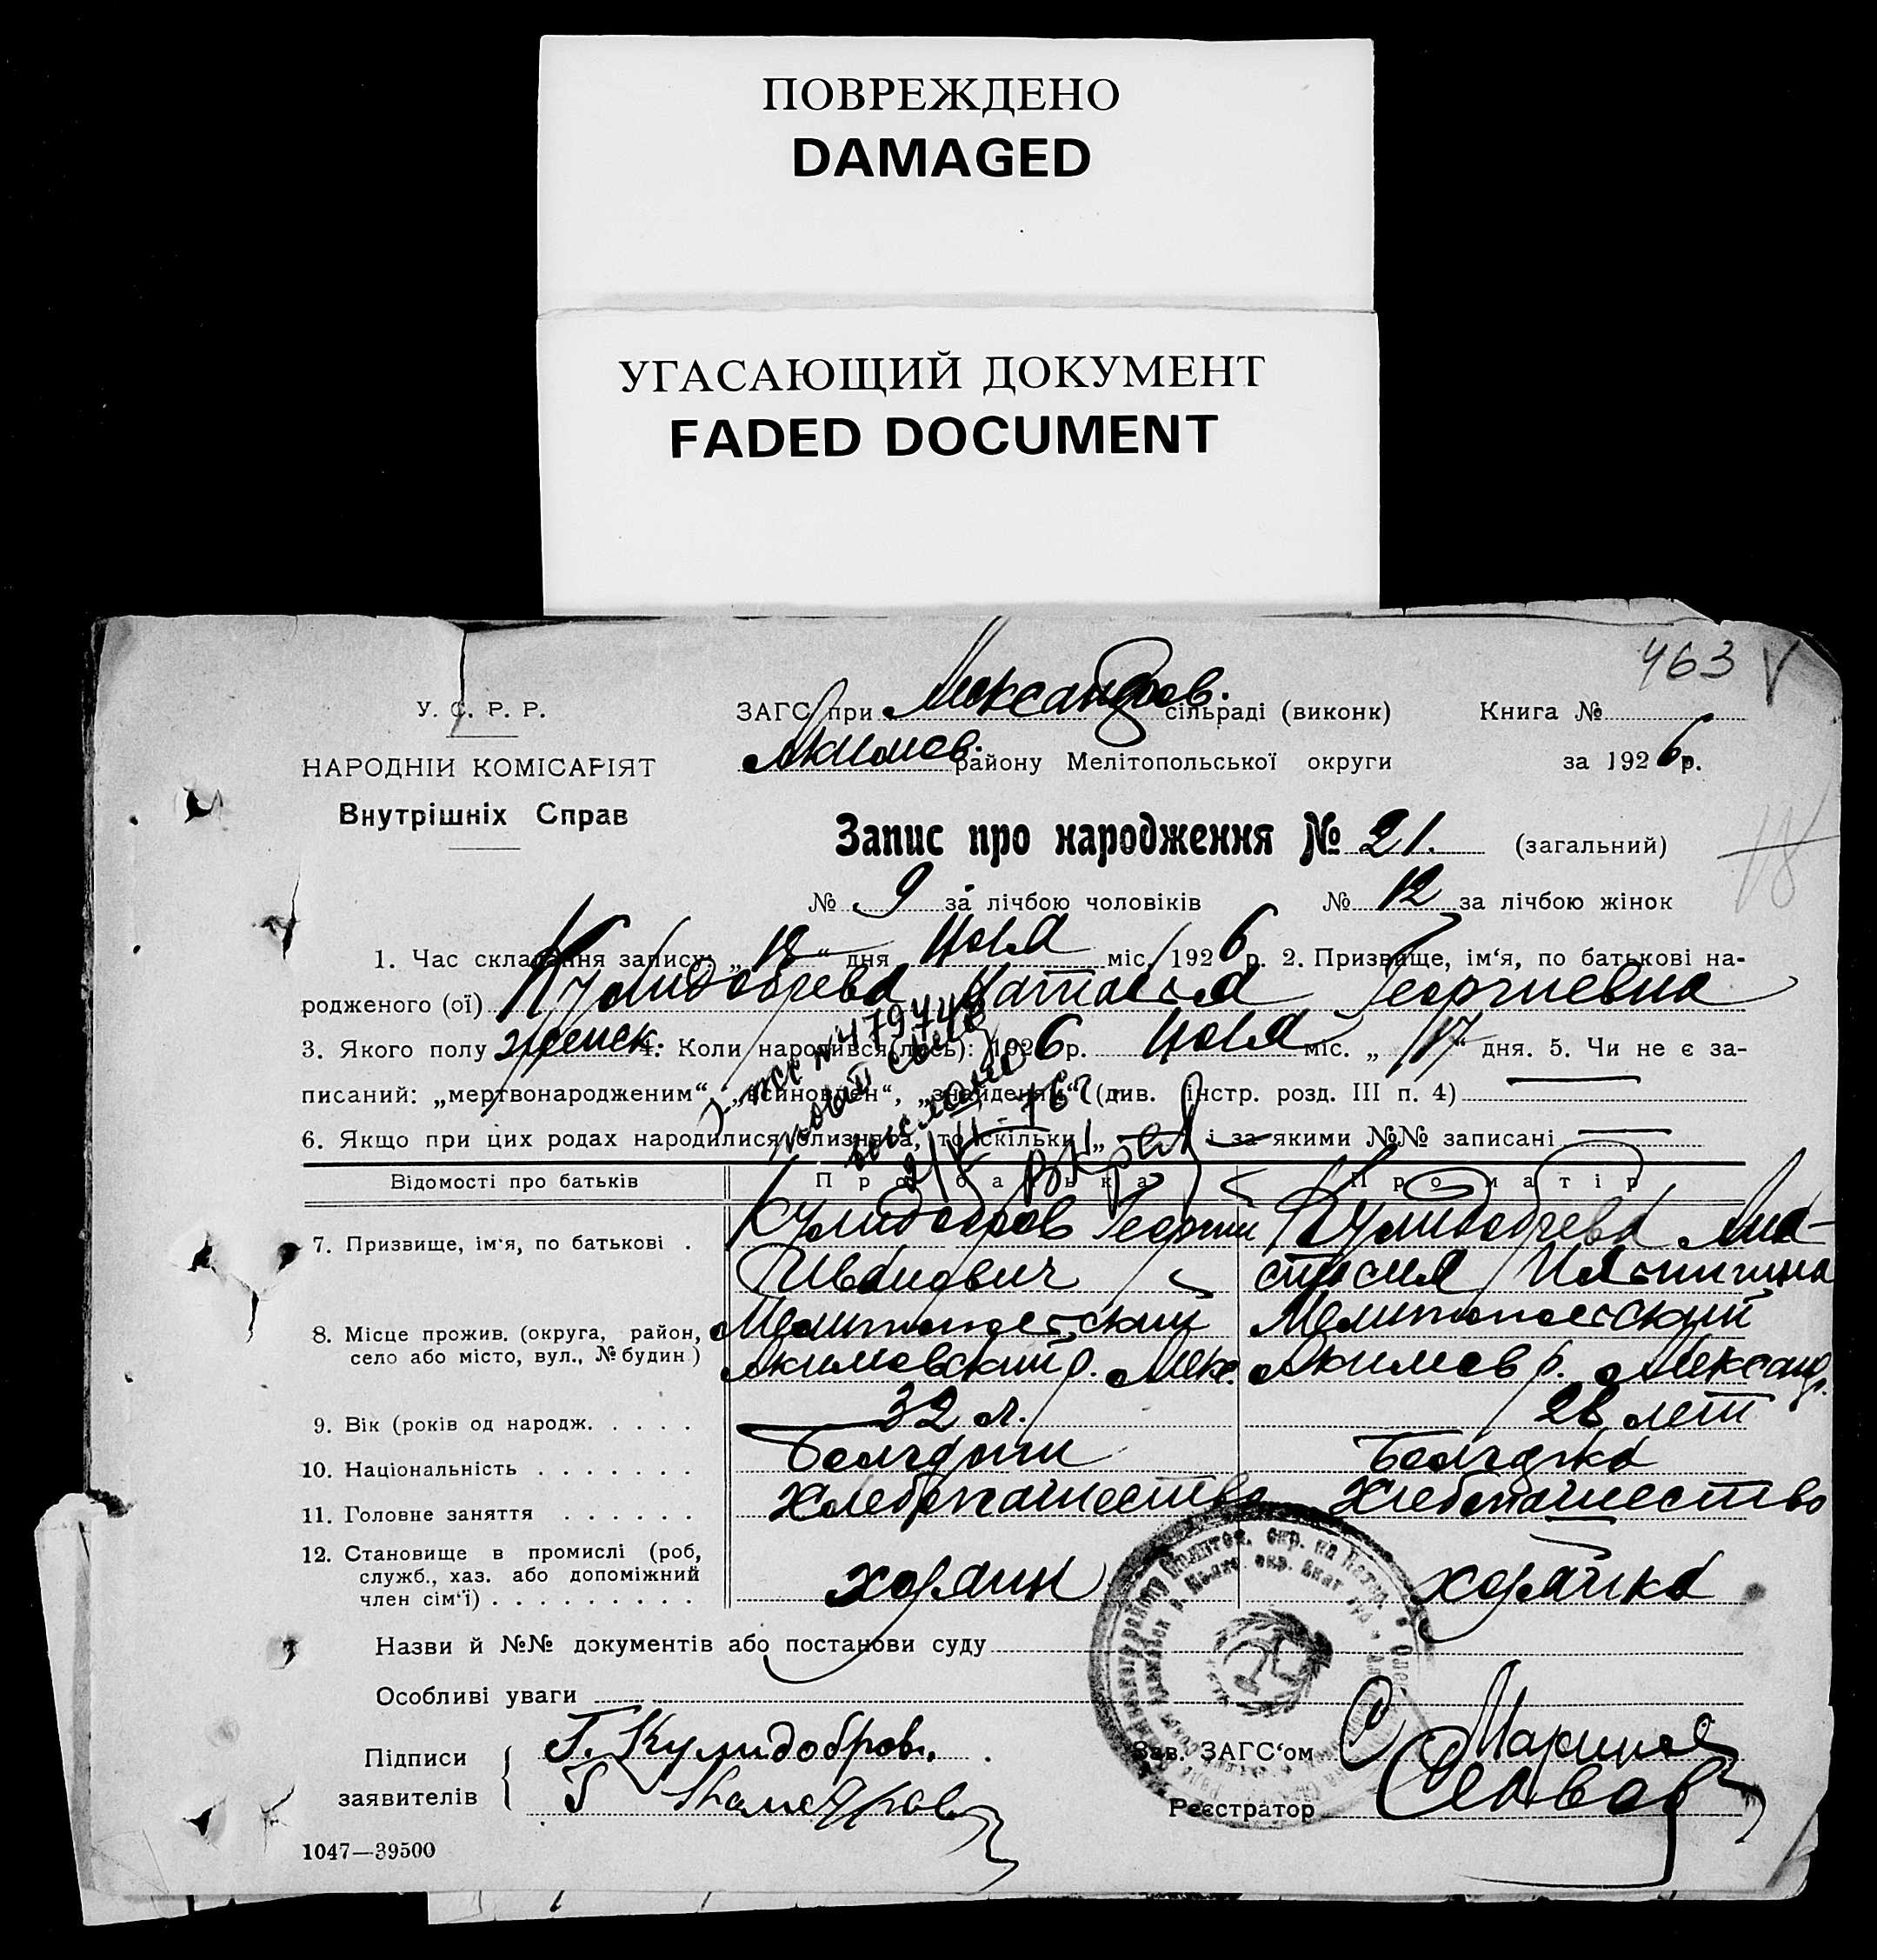 ПОВРЕЖДЕНО
DAMAGED
УГАСАЮЩИЙ ДОКУМЕНТ
FADED DOCUMENT
463 V
У. С. Р. Р.
НАРОДНІЙ КОМІСАРІЯТ
Внутрішніх Справ
ЗАГС при Александров. сільраді (виконк) Книга №
Акимов. району Мелітопольської округи за 1926 р.
Запис про народження № 21. (загальний)
18
№ 9 за лічбою чоловіків № 12 за лічбою жінок
1. Час складання запису: „18“ дня Июля міс. 1926 р. 2. Призвище, ім‘я, по батькові на-
родженого (ої) Кулидобрева Наталья Георгиевна
3. Якого полу женск. 4. Коли народився(лась): 1926 р. Июля міс. „17“ дня. 5. Чи не є за-
писаний: „мертвонародженим“, „всиновлен“, „знайденям“ (див. інстр. розд. III п. 4)
6. Якщо при цих родах народилися близнята, то скільки „ і за якими №№ записані
Відомості про батьків Про батька Про матір
7. Призвище, ім‘я, по батькові . Кулидобров Георгий Кулидобрева Ана-
Иванович стасия
8. Місце прожив. (округа, район, Мелитопольский Мелитопольский
село або місто, вул., № будин) Акимовский р. Алекс. Акимов р. Александр.
9. Вік (років од народж. . . . . . 32 л. 28 лет
10. Національність . . . . . . . Болгарин Болгарка
11. Головне заняття . . . . . . Хлебопашество Хлебопашество
12. Становище в промислі (роб, хозяин хозяйка
служб., хаз. або допоміжний
член сім‘ї) . . . . . . . . .
Назви й №№ документів або постанови суду
Особливі уваги
Підписи Г. Кулидобров. Зав. ЗАГС‘ом
заявителів Реєстратор
1047—39500